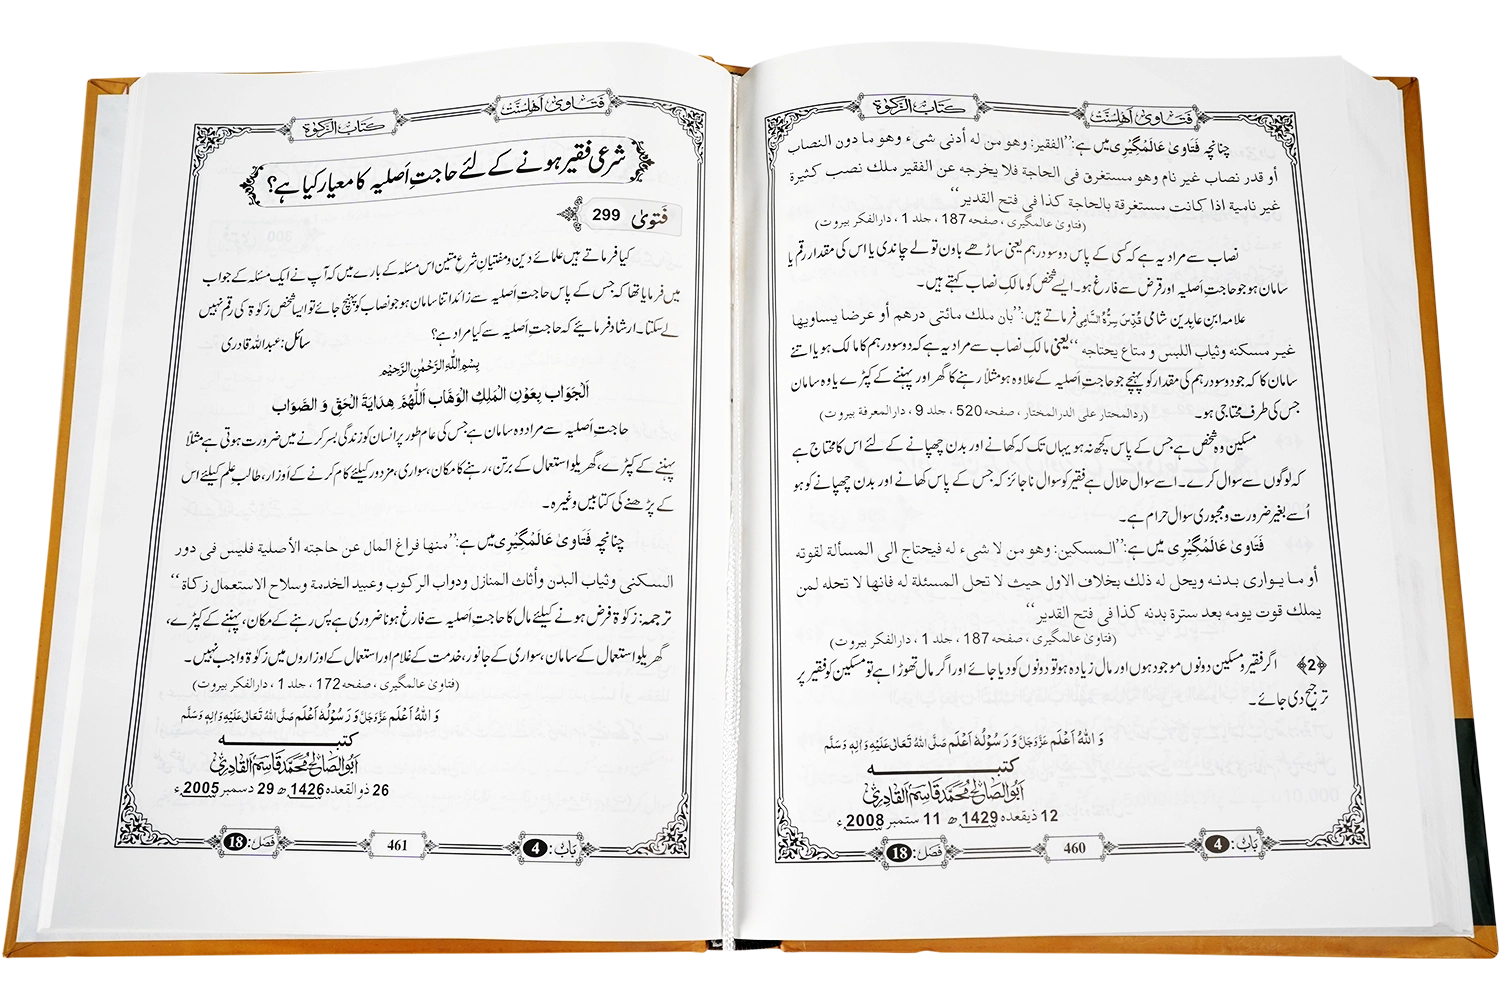 فتاویٰ اَھلسنّت
کتابُ الزکوٰۃ
چنانچہ فَتَاویٰ عَالَمْگِیْرِی میں ہے: ”الفقیر: وھو من لہ أدنی شیء وھو ما دون النصاب
أو قدر نصاب غیر نام وھو مستغرق فی الحاجة فلا یخرجہ عن الفقیر ملك نصب کثیرة
غیر نامیة اذا کانت مستغرقة بالحاجة کذا فی فتح القدیر“
(فتاویٰ عالمگیری ، صفحہ 187 ، جلد 1 ، دارالفکر بیروت)
نصاب سے مراد یہ ہے کہ کسی کے پاس دوسو درہم یعنی ساڑھے باون تولے چاندی یا اس کی مقدار رقم یا
سامان ہو جو حاجتِ اَصلیہ اور قرض سے فارغ ہو۔ ایسے شخص کو مالکِ نصاب کہتے ہیں۔
علامہ ابن عابدین شامی قُدِّسَ سِرُّہُ السَّامِی فرماتے ہیں: ”بان ملك مائتی درھم أو عرضا یساویھا
غیر مسکنہ وثیاب اللبس و متاع یحتاجہ“ یعنی مالکِ نصاب سے مراد یہ ہے کہ دوسو درہم کا مالک ہو یا اتنے
سامان کا کہ جو دوسو درہم کی مقدار کو پہنچے جو حاجتِ اَصلیہ کے علاوہ ہو مثلاً رہنے کا گھر اور پہننے کے کپڑے یا وہ سامان
جس کی طرف محتاجی ہو۔ (ردالمحتار علی الدرالمختار ، صفحہ 520 ، جلد 9 ، دارالمعرفة بیروت)
مسکین وہ شخص ہے جس کے پاس کچھ نہ ہو یہاں تک کہ کھانے اور بدن چھپانے کے لئے اس کا محتاج ہے
کہ لوگوں سے سوال کرے۔ اسے سوال حلال ہے فقیر کو سوال ناجائز کہ جس کے پاس کھانے اور بدن چھپانے کو ہو
اُسے بغیر ضرورت و مجبوری سوال حرام ہے۔
فَتَاویٰ عَالَمْگِیْرِی میں ہے: ”المسکین: وھو من لا شیء لہ فیحتاج الی المسألة لقوتہ
أو ما یواری بدنہ ویحل لہ ذلك بخلاف الاول حیث لا تحل المسئلة لہ فانھا لا تحلہ لمن
یملك قوت یومہ بعد سترة بدنہ کذا فی فتح القدیر“
(فتاویٰ عالمگیری ، صفحہ 187 ، جلد 1 ، دارالفکر بیروت)
﴿2﴾ اگر فقیر و مسکین دونوں موجود ہوں اور مال زیادہ ہو تو دونوں کو دیا جائے اور اگر مال تھوڑا ہے تو مسکین کو فقیر پر
ترجیح دی جائے۔
وَ اللہُ اَعْلَم عَزَّوَجَلَّ وَ رَسُوْلُہُ اَعْلَم صَلَّی اللہُ تَعَالٰی عَلَیْہِ وَاٰلِہٖ وَسَلَّم
کتبـــــــــہ
اَبُو الصَالِح مُحَمَّد قَاسِم اَلقَادِرِیْ
12 ذیقعدہ 1429 ھ 11 ستمبر 2008 ء
بَابُ : 4
460
فَصل : 18
فتاویٰ اَھلسنّت
کتابُ الزکوٰۃ
شرعی فقیر ہونے کے لئے حاجتِ اَصلیہ کا معیار کیا ہے؟
فَتویٰ 299
کیا فرماتے ہیں علمائے دین و مفتیانِ شرعِ متین اس مسئلہ کے بارے میں کہ آپ نے ایک مسئلہ کے جواب
میں فرمایا تھا کہ جس کے پاس حاجتِ اَصلیہ سے زائد اتنا سامان ہو جو نصاب کو پہنچ جائے تو ایسا شخص زکوٰۃ کی رقم نہیں
لے سکتا۔ ارشاد فرمائیے کہ حاجتِ اَصلیہ سے کیا مراد ہے؟ سائل: عبد اللہ قادری
بِسْمِ اللہِ الرَّحْمٰنِ الرَّحِیْمِ
اَلْجَوَاب بِعَوْنِ الْمَلِكِ الْوَھَّابِ اَللّٰھُمَّ ھِدَایَةَ الْحَقِّ وَ الصَّوَاب
حاجتِ اَصلیہ سے مراد وہ سامان ہے جس کی عام طور پر انسان کو زندگی بسر کرنے میں ضرورت ہوتی ہے مثلاً
پہننے کے کپڑے، گھریلو استعمال کے برتن، رہنے کا مکان، سواری، مزدور کیلئے کام کرنے کے اَوزار، طالبِ علم کیلئے اس
کے پڑھنے کی کتابیں وغیرہ۔
چنانچہ فَتَاویٰ عَالَمْگِیْرِی میں ہے: ”منھا فراغ المال عن حاجتہ الأصلیة فلیس فی دور
السکنی وثیاب البدن وأثاث المنازل ودواب الرکوب وعبید الخدمة وسلاح الاستعمال زکاة“
ترجمہ: زکوٰۃ فرض ہونے کیلئے مال کا حاجتِ اَصلیہ سے فارغ ہونا ضروری ہے پس رہنے کے مکان، پہننے کے کپڑے،
گھریلو استعمال کے سامان، سواری کے جانور، خدمت کے غلام اور استعمال کے اوزاروں میں زکوٰۃ واجب نہیں۔
(فتاویٰ عالمگیری ، صفحہ 172 ، جلد 1 ، دارالفکر بیروت)
وَ اللہُ اَعْلَم عَزَّوَجَلَّ وَ رَسُوْلُہُ اَعْلَم صَلَّی اللہُ تَعَالٰی عَلَیْہِ وَاٰلِہٖ وَسَلَّم
کتبـــــــــہ
اَبُو الصَالِح مُحَمَّد قَاسِم اَلقَادِرِیْ
26 ذوالقعدہ 1426 ھ 29 دسمبر 2005 ء
بَابُ : 4
461
فَصل : 18